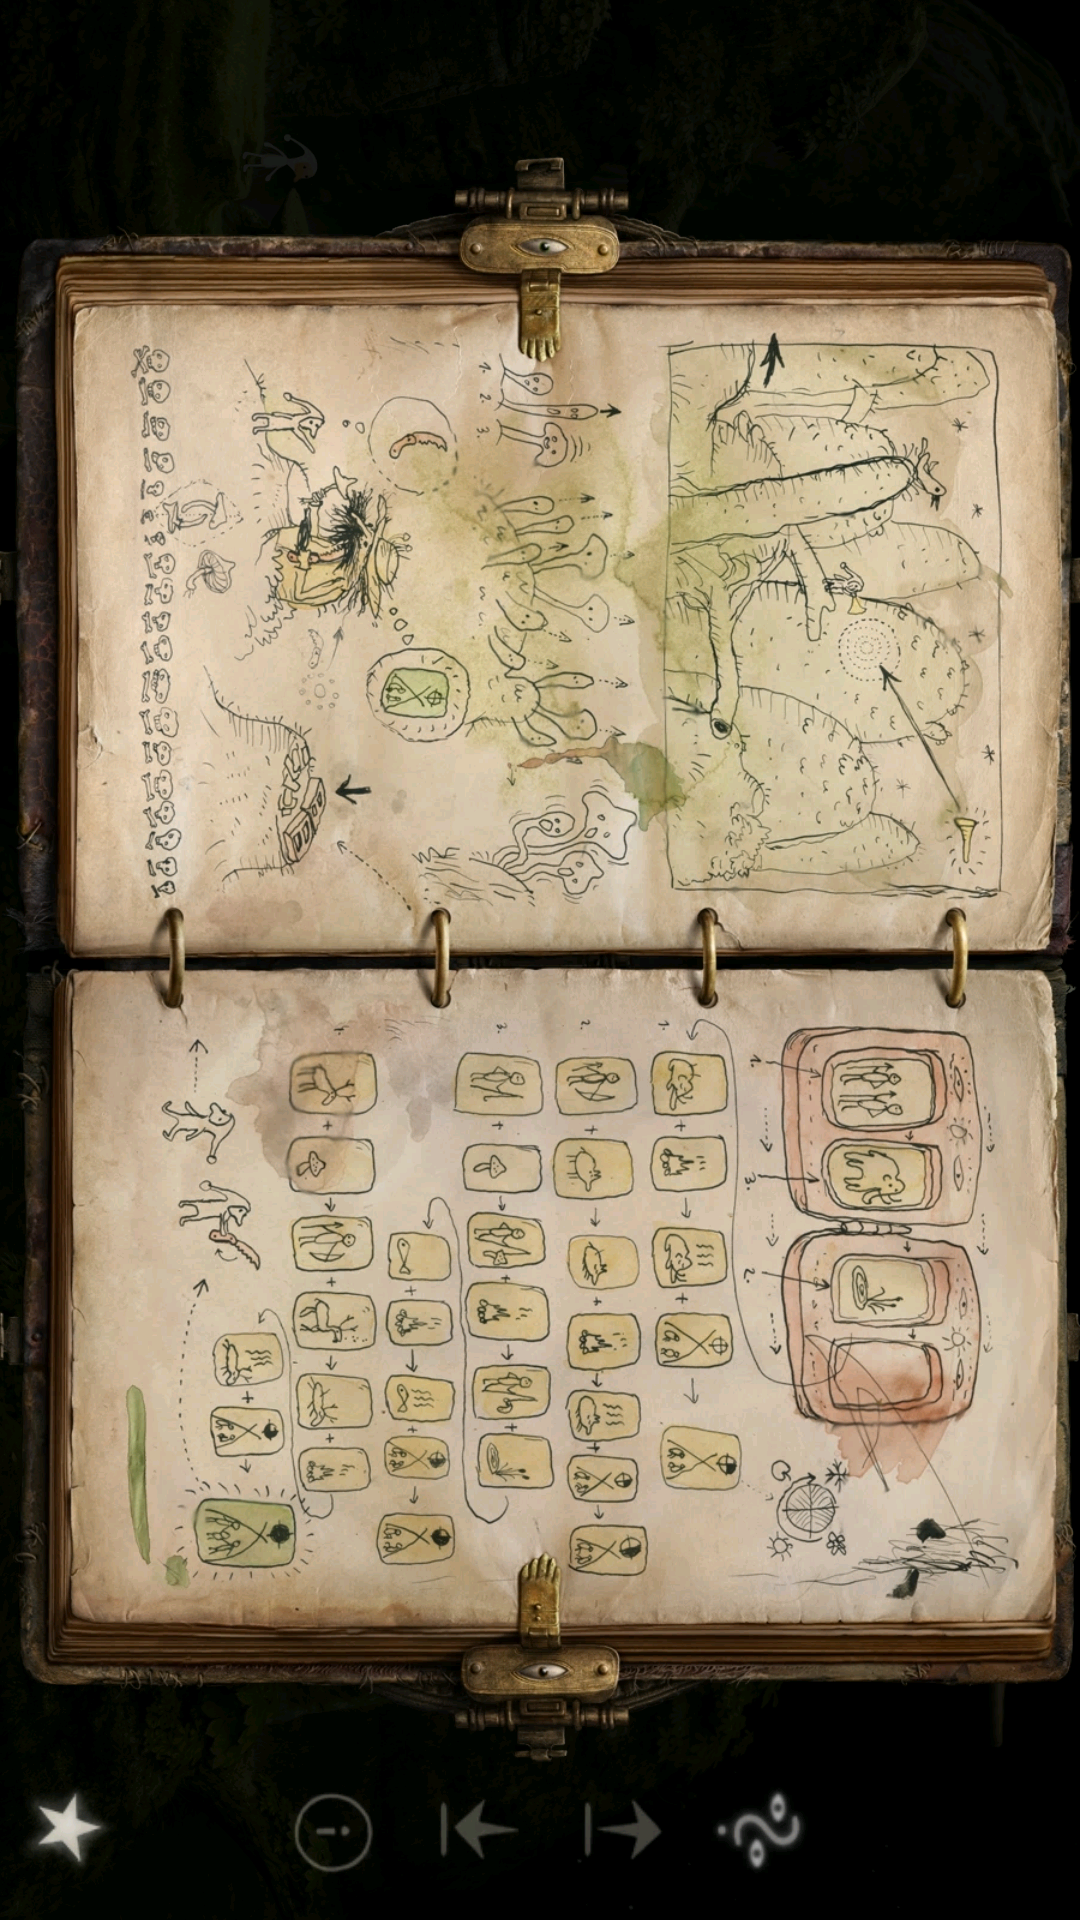 1. 2. 3.
1. 3. 2.
1.
2.
3.
4.
i